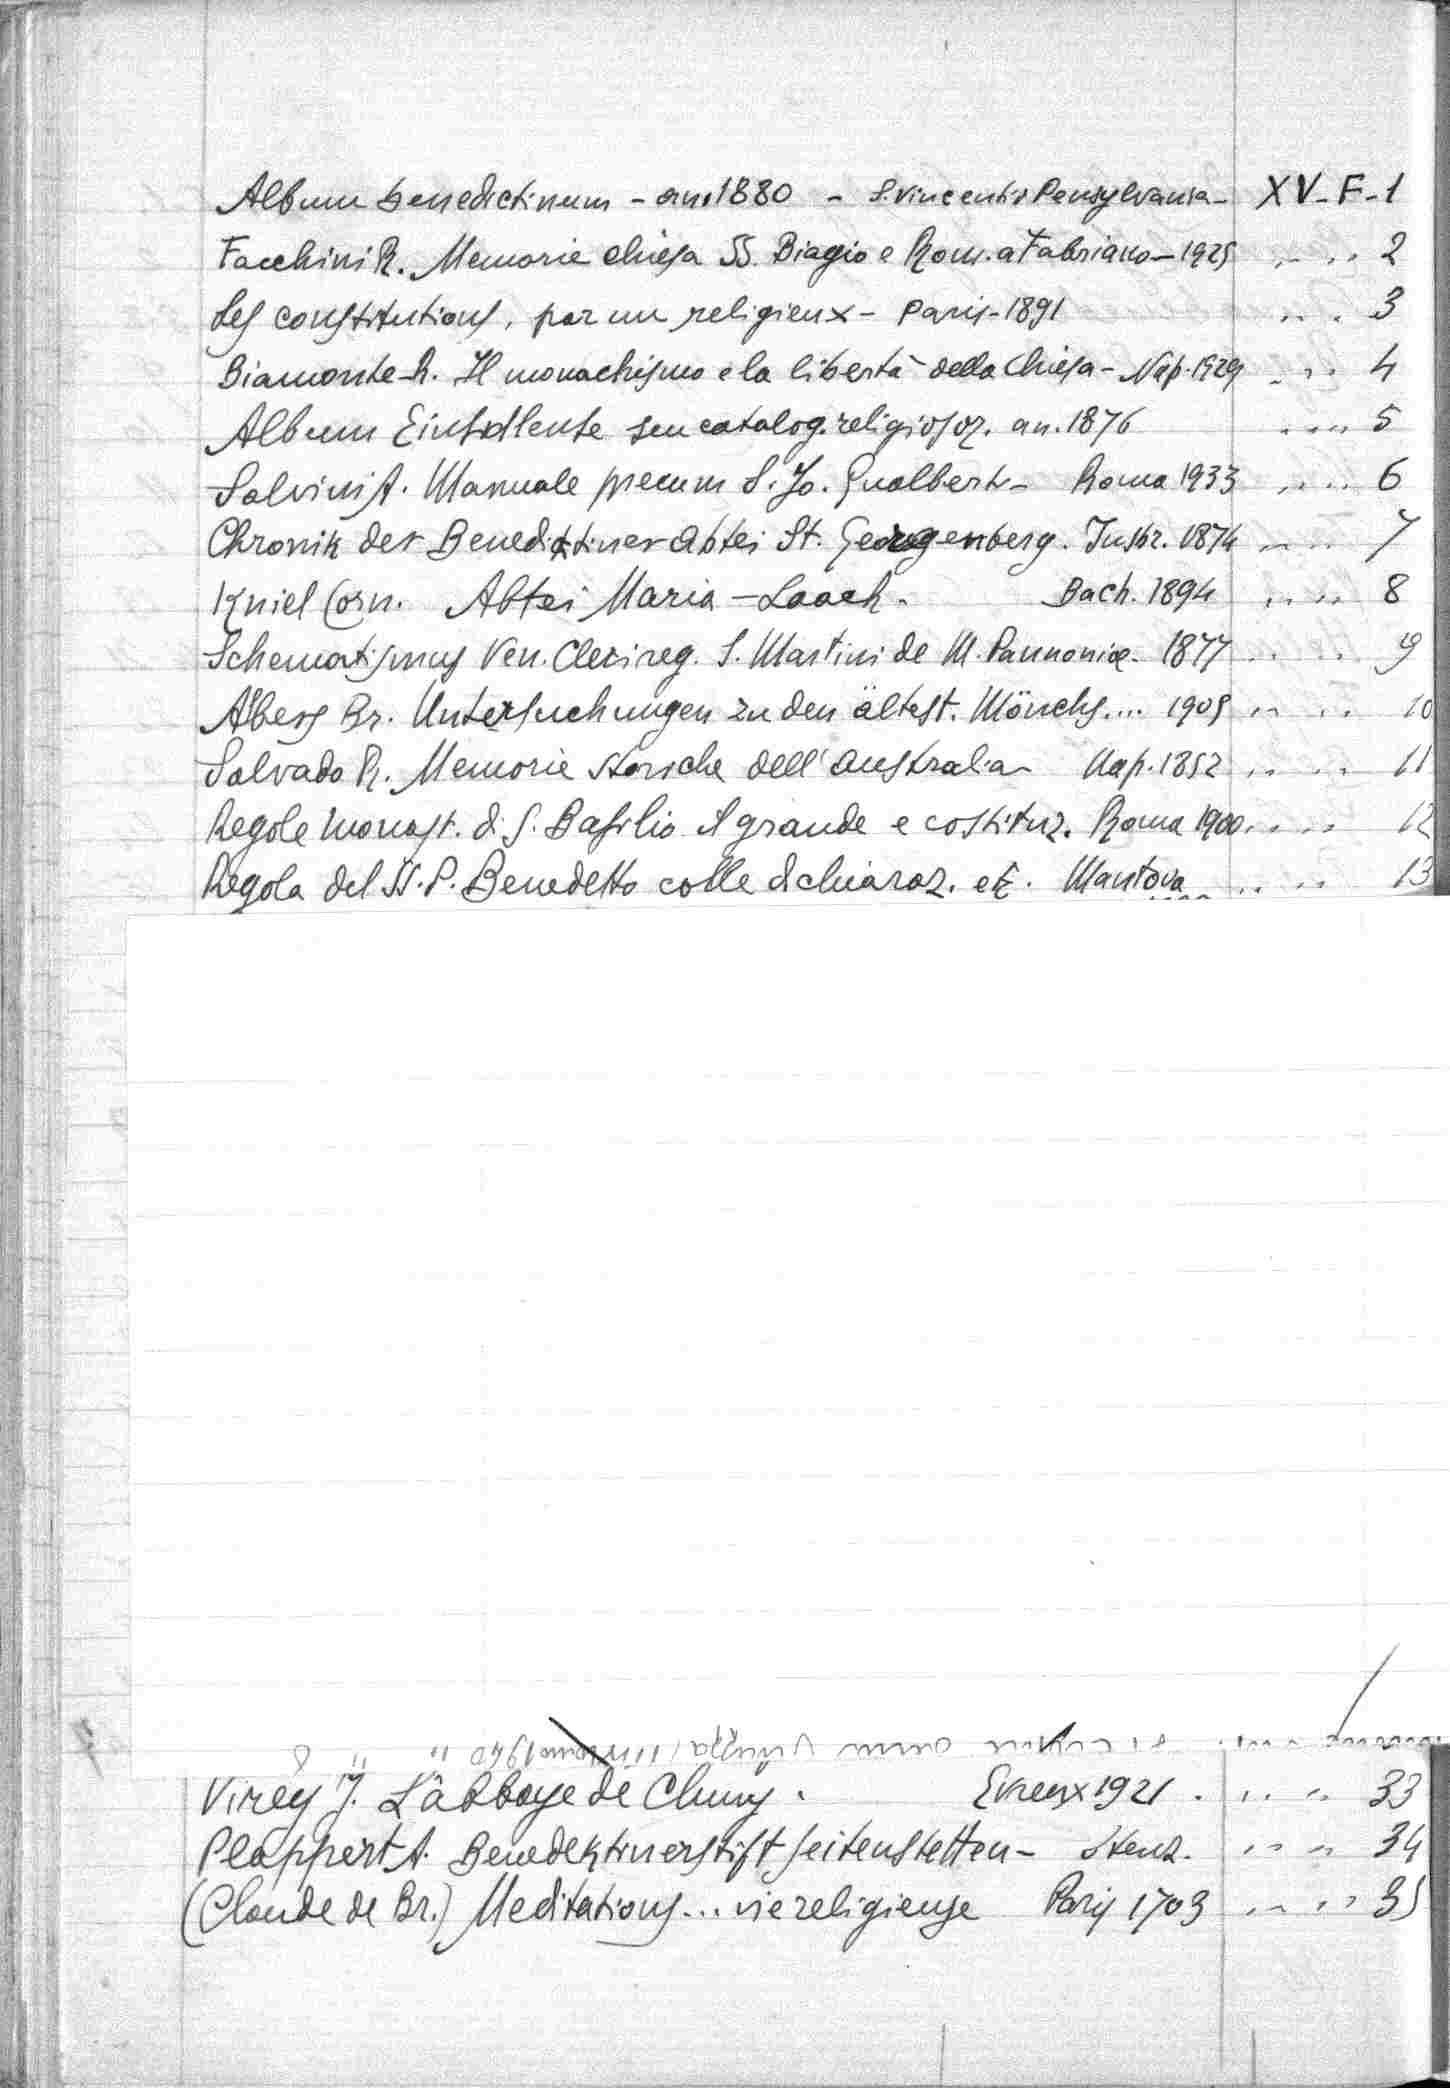 Album benedictinum - ann. 1880 - S. Vincentii Pensylvania - XV-F-1
Facchini R. Memorie chiesa SS. Biagio e Rom. a Fabriano - 1925 " " 2
Les constitutions, par un religieux - Paris - 1891 " " 3
Biamonte R. Il monachismo e la libertà della Chiesa - Nap. 1929 " " 4
Album Einsidlense seu catalog. religiosor. an. 1876 " " 5
Salvini A. Manuale precum S. Jo. Gualberti - Roma 1933 " " 6
Chronik der Benediktiner Abtei St. Georgenberg. Insbr. 1874 " " 7
Kniel Corn. Abtei Maria - Laach. Bach. 1894 " " 8
Schematismus Ven. Cleri reg. S. Martini de M. Pannoniæ. 1877 " " 9
Albers Br. Untersuchungen zu den ältest. Mönchs.... 1905 " " 10
Salvado R. Memorie storiche dell'Australia Nap. 1852 " " 11
Regole monast. di S. Basilio il grande e costituz. Roma 1900 " " 12
Regola del SS. P. Benedetto colle dichiaraz. etc. Mantova " " 13
Virey J. L'abbaye de Cluny. Evreux 1921. " " 33
Plappert A. Benedektinerstift Seitenstetten - " " 34
(Claude de Br.) Meditations... vie religieuse Paris 1703 " " 35